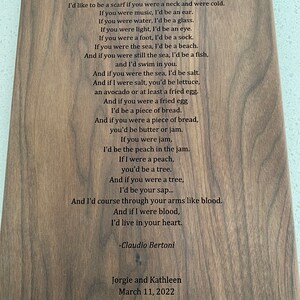 I'd like to be a scarf if you were a neck and were cold.
If you were music, I'd be an ear.
If you were water, I'd be a glass.
If you were light, I'd be an eye.
If you were a foot, I'd be a sock.
If you were the sea, I'd be a beach.
And if you were still the sea, I'd be a fish,
and I'd swim in you.
And if you were the sea, I'd be salt.
And if I were salt, you'd be lettuce,
an avocado or at least a fried egg.
And if you were a fried egg
I'd be a piece of bread.
And if you were a piece of bread,
you'd be butter or jam.
If you were jam,
I'd be the peach in the jam.
If I were a peach,
you'd be a tree.
And if you were a tree,
I'd be your sap...
And I'd course through your arms like blood.
And if I were blood,
I'd live in your heart.
-Claudio Bertoni
Jorgie and Kathleen
March 11, 2022